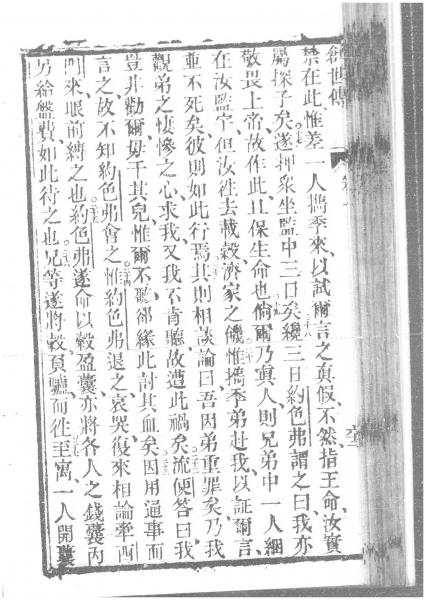 創世傳
禁在此惟差一人擕季來、以試爾言之真假、不然、指王命、汝實
屬探子矣、遂押衆坐監中三日矣、纔三日約色弗謂之曰、我亦
敬畏上帝、故作此、且保生命也、倘爾乃真人、則兄弟中一人綑
在汝監牢、但汝徃去載穀、濟家之饑、惟擕季弟赴我、以証爾言、
並不死矣、彼則如此行焉、其則相談論曰、吾因弟重罪矣、乃我
觀弟之悽慘之心、求我、又我不肯聽、故遭此禍矣、流便答曰、我
豈非勸爾毋干其兒、惟爾不聽、卻緣此討其血矣、因用通事而
言之、故不知約色弗會之、惟約色弗退之、哀哭、復來相論、牽西
門來、眼前縛之也、約色弗遂命以穀盈囊、亦將各人之錢囊內
另給盤費、如此待之也、兄等遂將穀負驢、而徃至寓、一人開囊